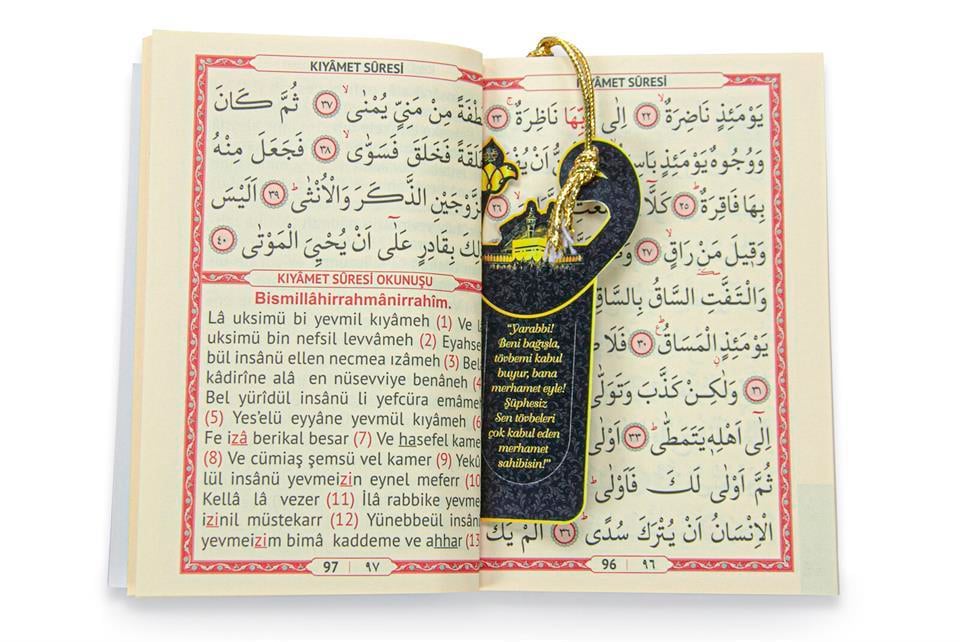 KIYÂMET SÛRESİ
يَوْمَئِذٍ نَاضِرَةٌۙ ٢٢ اِلٰى رَبِّهَا نَاظِرَةٌۚ ٢٣
وَوُجُوهٌ يَوْمَئِذٍ
بِهَا فَاقِرَةٌۜ ٢٥ كَلَّٓا ٢٦
وَقِيلَ مَنْ رَاقٍۙ ٢٧
وَالْتَفَّتِ السَّاقُ بِالسَّاقِ
يَوْمَئِذٍ الْمَسَاقُۜ ٣٠ فَلَا
٣١ وَلٰكِنْ كَذَّبَ وَتَوَلّٰى
اِلٰٓى اَهْلِهٖ يَتَمَطّٰىۜ ٣٣ اَوْلٰى
ثُمَّ اَوْلٰى لَكَ فَاَوْلٰىۜ
الْاِنْسَانُ اَنْ يُتْرَكَ سُدًىۜ ٣٦ اَلَمْ يَكُ
96 | ٩٦
"Yarabbi!
Beni bağışla,
tövbemi kabul
buyur, bana
merhamet eyle!
Şüphesiz
Sen tövbeleri
çok kabul eden
merhamet
sahibisin!"
KIYÂMET SÛRESİ
مِنْ مَنِيٍّ يُمْنٰىۙ ٣٧ ثُمَّ كَانَ
فَخَلَقَ فَسَوّٰىۙ ٣٨ فَجَعَلَ مِنْهُ
الذَّكَرَ وَالْاُنْثٰىۜ ٣٩ اَلَيْسَ
بِقَادِرٍ عَلٰٓى اَنْ يُحْيِيَ الْمَوْتٰى ٤٠
KIYÂMET SÛRESİ OKUNUŞU
Bismillâhirrahmânirrahîm.
Lâ uksimü bi yevmil kıyâmeh (1) Ve
uksimü bin nefsil levvâmeh (2) Eyahse
bül insânü ellen necmea ızâmeh (3) Bel
kâdirîne alâ en nüsevviye benâneh (4
Bel yürîdül insânü li yefcüra emâme
(5) Yes'elü eyyâne yevmül kıyâmeh (6
Fe izâ berikal besar (7) Ve hasefel kame
(8) Ve cümiaş şemsü vel kamer (9) Yekû
lül insânü yevmeizin eynel meferr (10
Kellâ lâ vezer (11) İlâ rabbike yevme
izinil müstekarr (12) Yünebbeül insân
yevmeizim bimâ kaddeme ve ahhar (13
97 | ٩٧